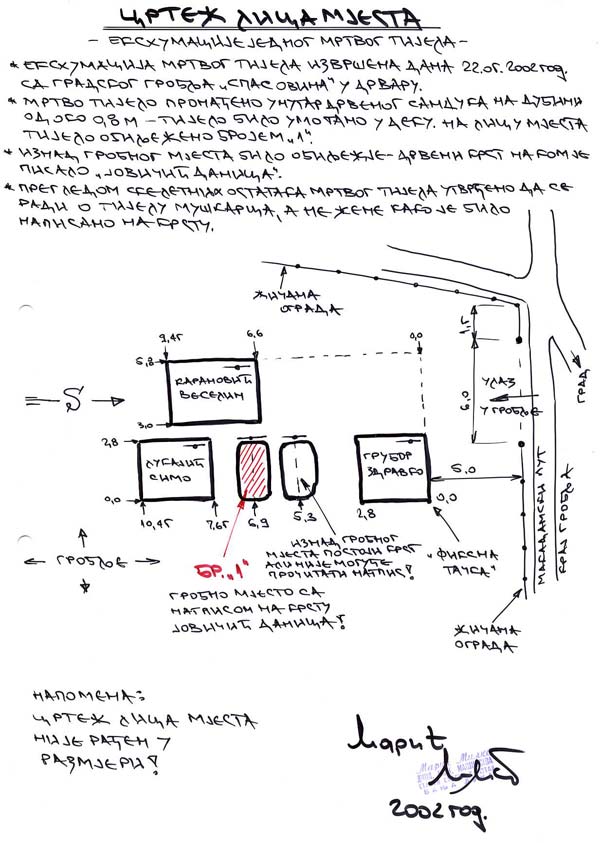 ЦРТЕЖ ЛИЦА МЈЕСТА
- ЕКСХУМАЦИЈЕ ЈЕДНОГ МРТВОГ ТИЈЕЛА -
* ЕКСХУМАЦИЈА МРТВОГ ТИЈЕЛА ИЗВРШЕНА ДАНА 22.05.2002 год.
СА ГРАДСКОГ ГРОБЉА „СПАСОВИНА" У ДРВАРУ.
* МРТВО ТИЈЕЛО ПРОНАЂЕНО УНУТАР ДРВЕНОГ САНДУКА НА ДУБИНИ
ОД ОКО 0,8 М - ТИЈЕЛО БИЛО УМОТАНО У ДЕКУ. НА ЛИЦУ МЈЕСТА
ТИЈЕЛО ОБИЉЕЖЕНО БРОЈЕМ „1".
* ИЗНАД ГРОБНОГ МЈЕСТА БИЛО ОБИЉЕЖЈЕ - ДРВЕНИ КРСТ НА КОМ ЈЕ
ПИСАЛО „ЈОВИЧИЋ ДАНИЦА".
* ПРЕГЛЕДОМ СКЕЛЕТНИХ ОСТАТАКА МРТВОГ ТИЈЕЛА УТВРЂЕНО ДА СЕ
РАДИ О ТИЈЕЛУ МУШКАРЦА, А НЕ ЖЕНЕ КАКО ЈЕ БИЛО
НАПИСАНО НА КРСТУ.
ЖИЧАНА
ОГРАДА
1,5
9,45
6,6
0,0
5,8
КАРАНОВИЋ
ВЕСЕЛИН
3,0
S
6,0
УЛАЗ
У ГРОБЉЕ
ГРАД
2,8
ЛУКАЈИЋ
СИМО
ГРУБОР
ЗДРАВКО
5,0
0,0
10,45
7,65
6,9
5,3
2,8
0,0
МАКАДАМСКИ ПУТ
КРАЈ ГРОБЉА
ГРОБЉЕ
БР. „1"
ИЗНАД ГРОБНОГ
МЈЕСТА ПОСТОЈИ КРСТ
АЛИ НИЈЕ МОГУЋЕ
ПРОЧИТАТИ НАТПИС!
„ФИКСНА
ТАЧКА"
ГРОБНО МЈЕСТО СА
НАТПИСОМ НА КРСТУ
ЈОВИЧИЋ ДАНИЦА!
ЖИЧАНА
ОГРАДА
НАПОМЕНА:
ЦРТЕЖ ЛИЦА МЈЕСТА
НИЈЕ РАЂЕН У
РАЗМЈЕРИ!
Марић
2002 год.